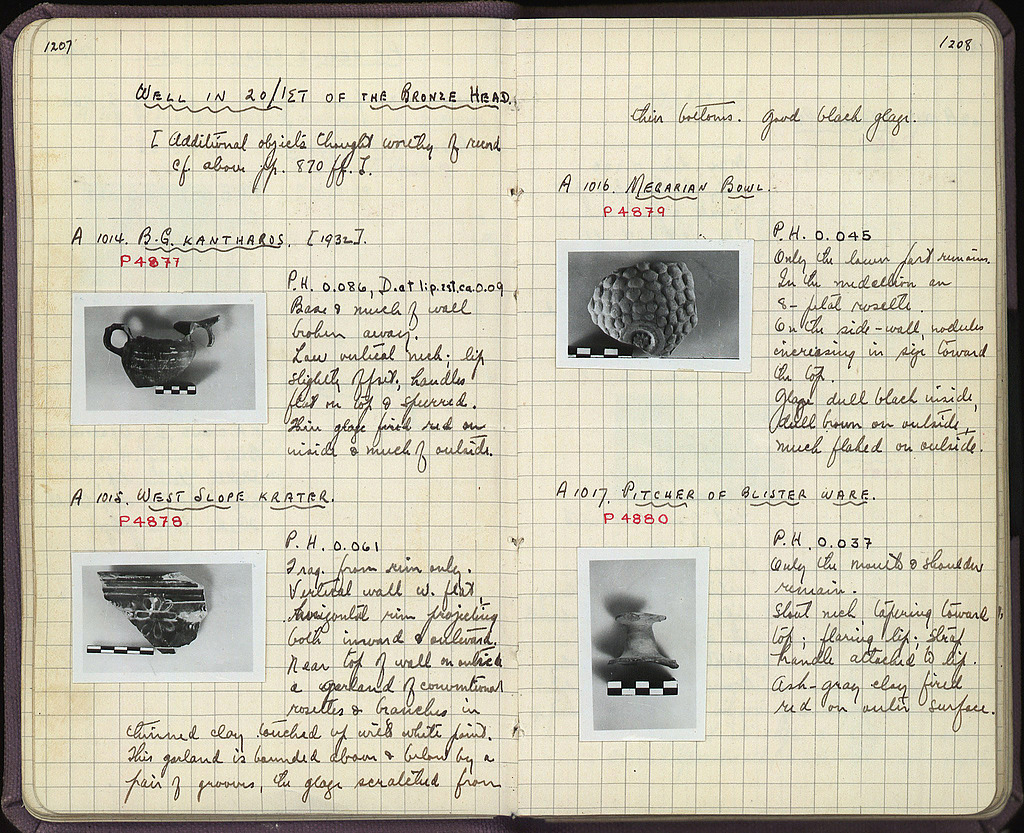 1207
WELL IN 20/ΙΣΤ OF THE BRONZE HEAD.
[Additional objects thought worthy of record
cf. above pp. 870 ff.].
A 1014. B.G. KANTHAROS. [1932].
P4877
P.H. 0.086, D. at lip. est. ca. 0.09
Base & much of wall
broken away.
Low vertical neck; lip
slightly offset; handles
flat on top & spurred.
Thin glaze fired red on
inside & much of outside.
A 1015. WEST SLOPE KRATER.
P4878
P.H. 0.061
Frag. from rim only.
Vertical wall w. flat,
horizontal rim projecting
both inward & outward.
Near top of wall on outside
a garland of conventional
rosettes & branches in
thinned clay touched up with white paint.
This garland is bounded above & below by a
pair of grooves, the glaze scratched from
1208
their bottoms. Good black glaze.
A 1016. MEGARIAN BOWL.
P4879
P.H. 0.045
Only the lower part remains.
In the medallion an
8-petal rosette.
On the side-wall, nodules
increasing in size toward
the top.
Glaze dull black inside,
dull brown on outside,
much flaked on outside.
A 1017. PITCHER OF BLISTER WARE.
P4880
P.H. 0.037
Only the mouth & shoulder
remain.
Short neck tapering toward
top; flaring lip; strap
handle attached to lip.
Ash-gray clay fired
red on outer surface.